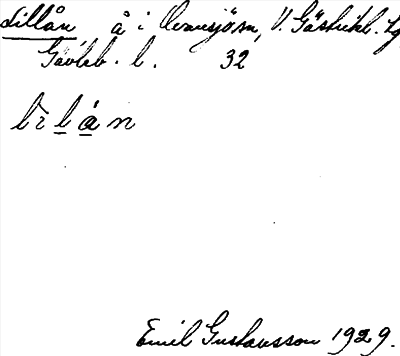 Lillån å i Ovansjö sn, V. Gästrikl. tg
Gävleb. l. 32
lìlán
Emil Gustavsson 1929.